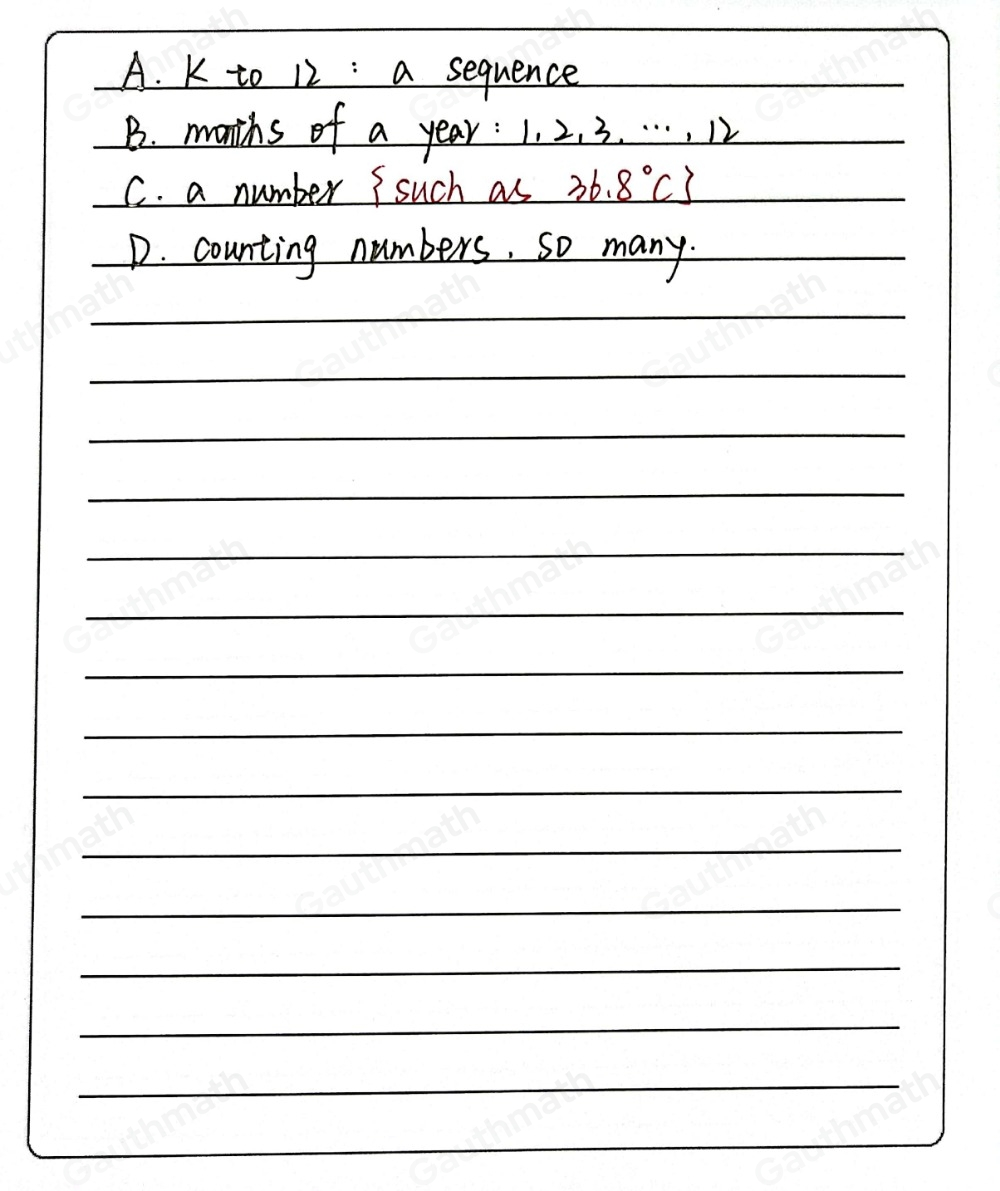 A. K to 12 : a sequence
B. months of a year : 1, 2, 3, ..., 12
C. a number {such as 36.8°C}
D. counting numbers, so many.